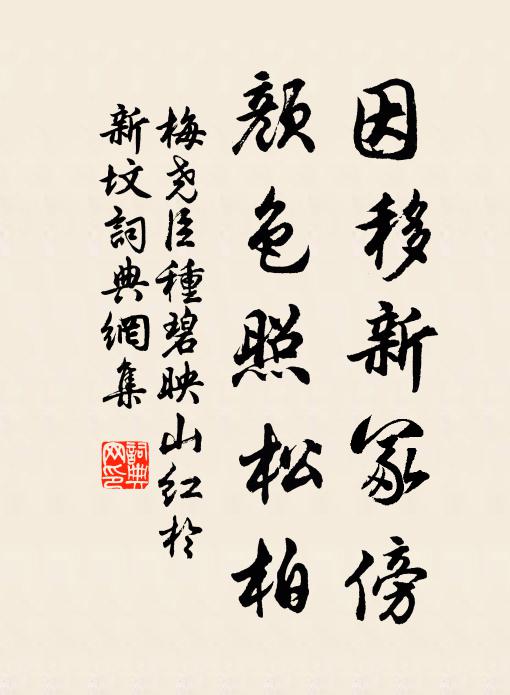 因移新冢傍
顏色照松柏
梅堯臣種碧映山紅於
新坟詞典網集
詞典网印